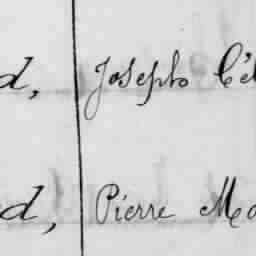 d, Joseph Cé
d, Pierre Ma